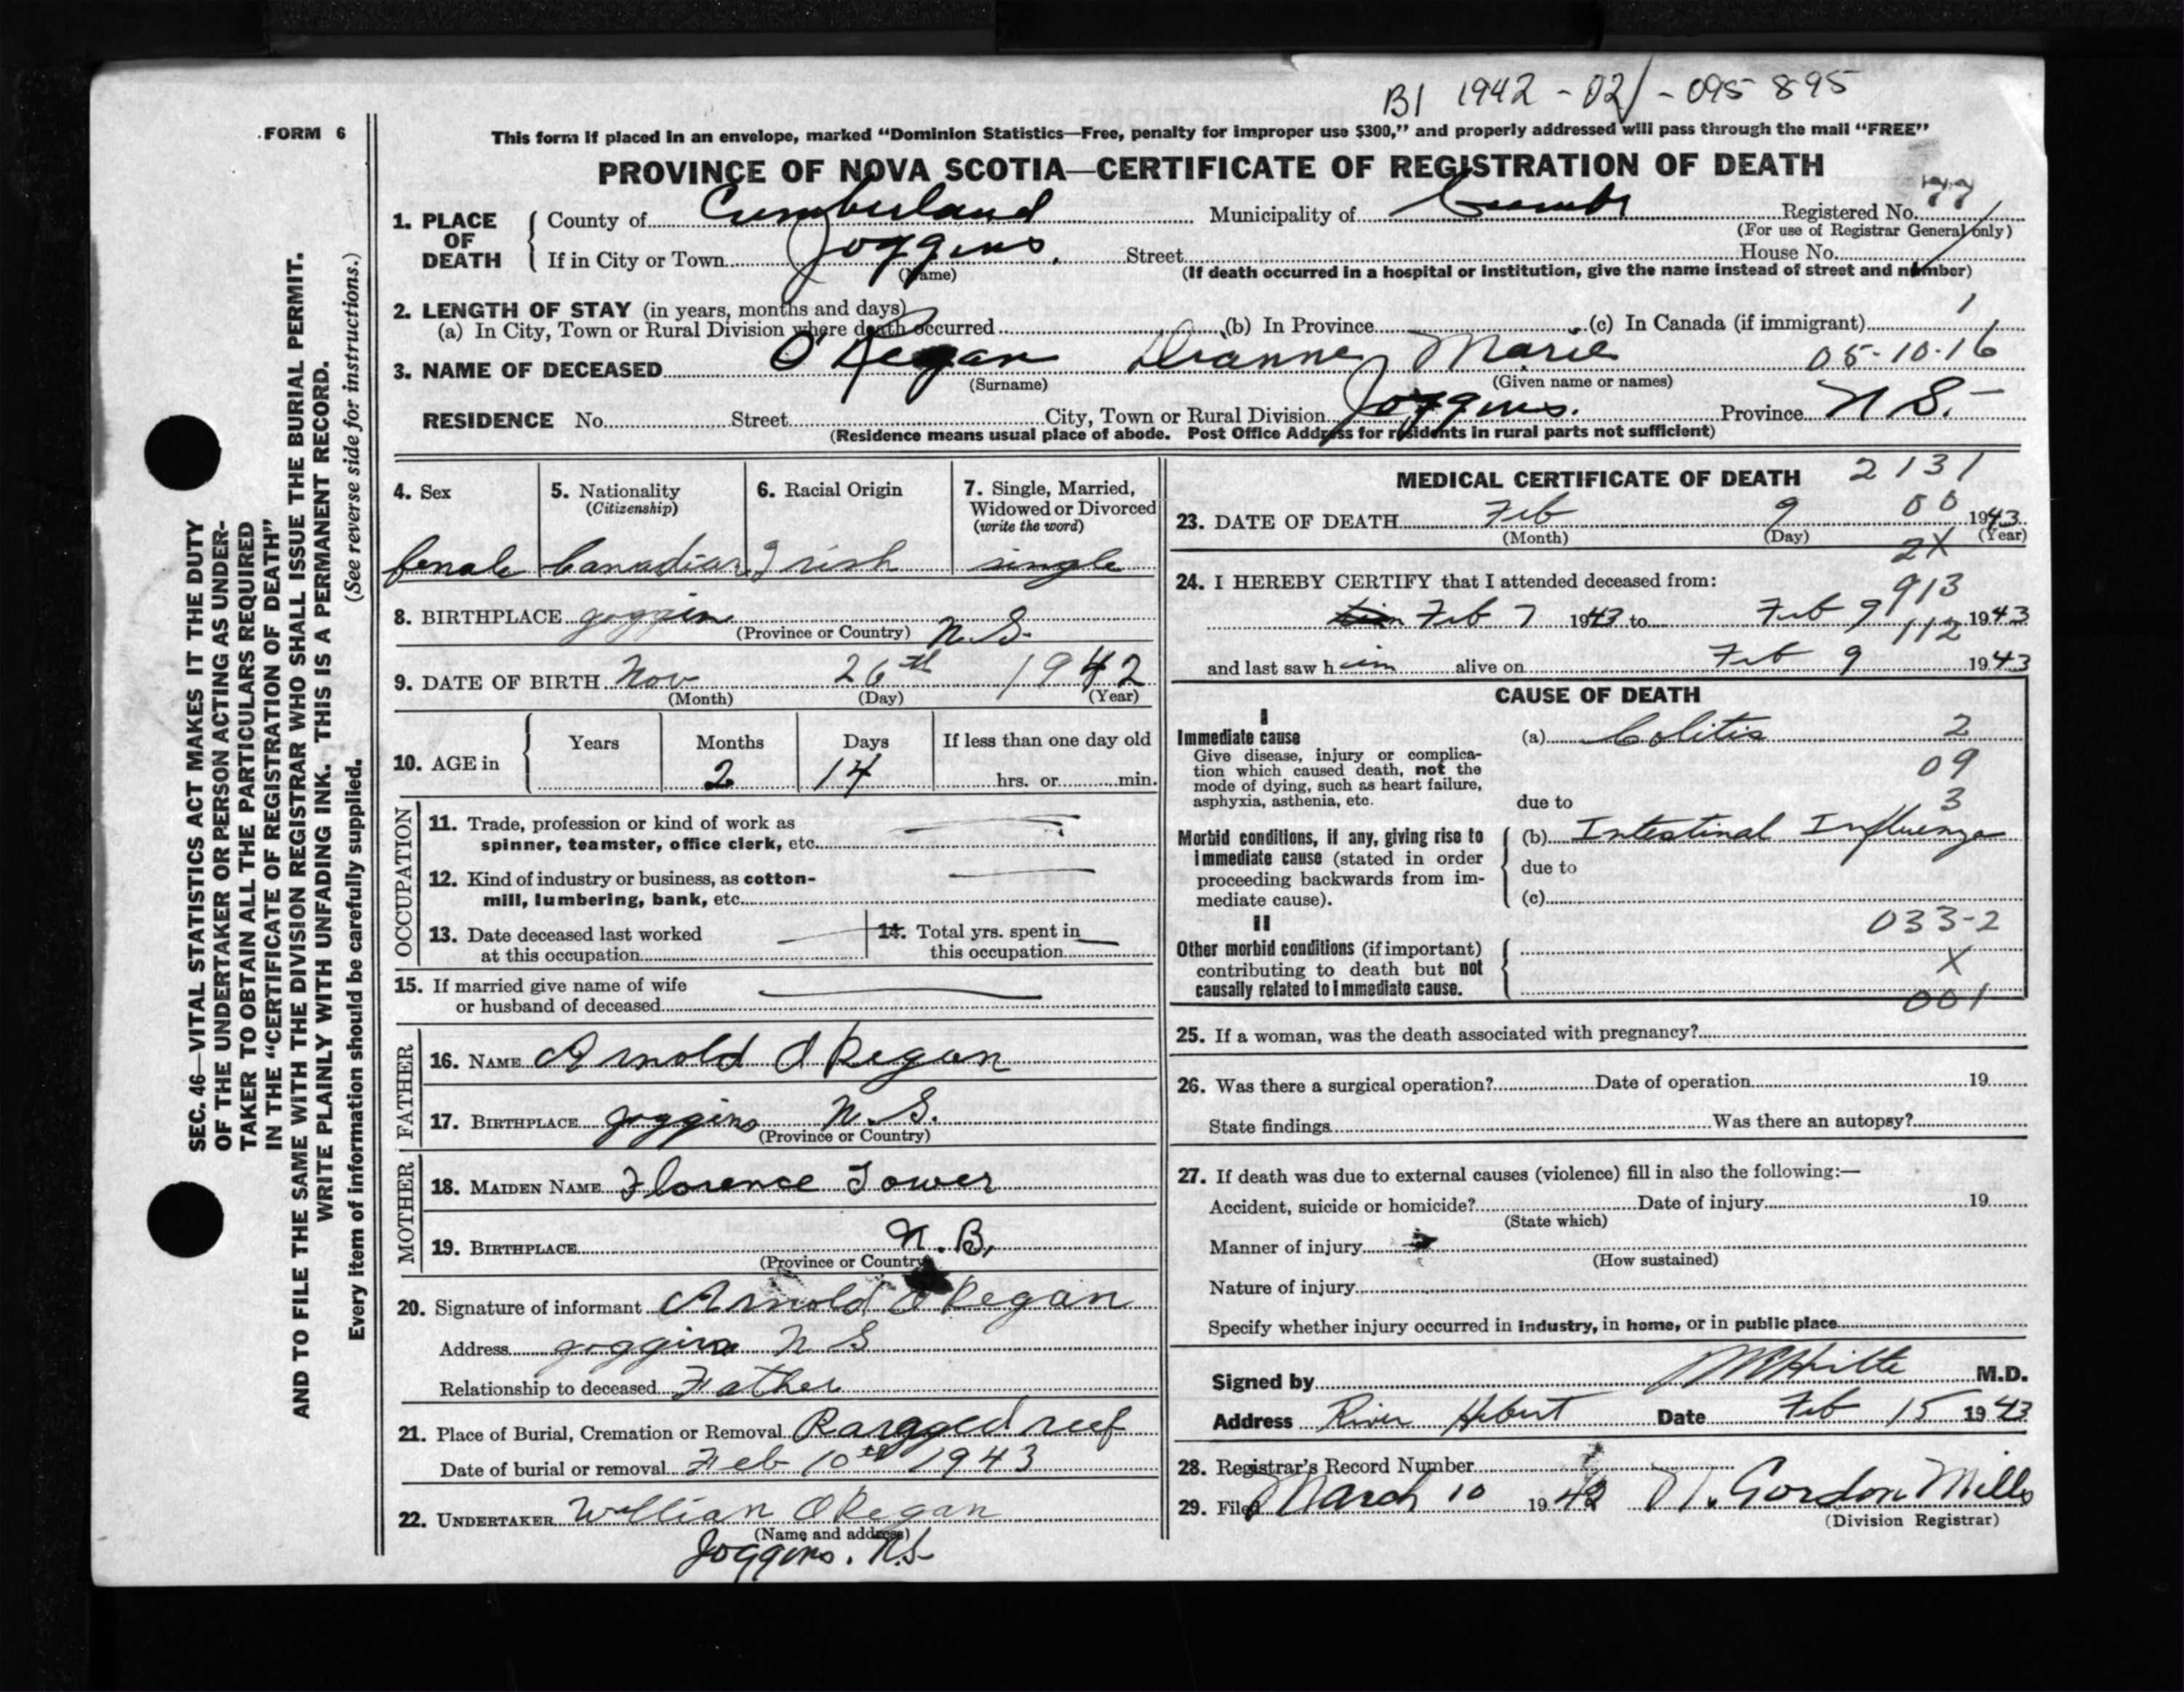 B1 1942-02-095895
FORM 6
This form if placed in an envelope, marked "Dominion Statistics—Free, penalty for improper use $300," and properly addressed will pass through the mail "FREE"
PROVINCE OF NOVA SCOTIA—CERTIFICATE OF REGISTRATION OF DEATH
1. PLACE OF DEATH
County of Cumberland Municipality of Registered No. 77
(For use of Registrar General only)
If in City or Town Joggins. Street House No.
(Name) (If death occurred in a hospital or institution, give the name instead of street and number)
2. LENGTH OF STAY (in years, months and days) 1
(a) In City, Town or Rural Division where death occurred (b) In Province (c) In Canada (if immigrant)
3. NAME OF DECEASED O'Regan Dianne Marie 05-10-16
(Surname) (Given name or names)
RESIDENCE No. Street City, Town or Rural Division Joggins. Province N S.
(Residence means usual place of abode. Post Office Address for residents in rural parts not sufficient)
SEC. 46—VITAL STATISTICS ACT MAKES IT THE DUTY
OF THE UNDERTAKER OR PERSON ACTING AS UNDER-
TAKER TO OBTAIN ALL THE PARTICULARS REQUIRED
IN THE "CERTIFICATE OF REGISTRATION OF DEATH"
AND TO FILE THE SAME WITH THE DIVISION REGISTRAR WHO SHALL ISSUE THE BURIAL PERMIT.
WRITE PLAINLY WITH UNFADING INK. THIS IS A PERMANENT RECORD.
Every item of information should be carefully supplied. (See reverse side for instructions.)
4. Sex
female
5. Nationality
(Citizenship)
Canadian
6. Racial Origin
Irish
7. Single, Married,
Widowed or Divorced
(write the word)
single
8. BIRTHPLACE Joggins N.S.
(Province or Country)
9. DATE OF BIRTH Nov 26th 1942
(Month) (Day) (Year)
10. AGE in
Years Months Days If less than one day old
2 14 hrs. or min.
OCCUPATION
11. Trade, profession or kind of work as
spinner, teamster, office clerk, etc.
12. Kind of industry or business, as cotton-
mill, lumbering, bank, etc.
13. Date deceased last worked
at this occupation
14. Total yrs. spent in
this occupation
15. If married give name of wife
or husband of deceased
FATHER
16. NAME Arnold O Regan
17. BIRTHPLACE Joggins N.S.
(Province or Country)
MOTHER
18. MAIDEN NAME Florence Tower
19. BIRTHPLACE N.B.
(Province or Country)
20. Signature of informant Arnold O Regan
Address Joggins N S
Relationship to deceased Father
21. Place of Burial, Cremation or Removal Ragged reef
Date of burial or removal Feb 10th 1943
22. UNDERTAKER William O Regan
(Name and address)
Joggins. N.S.
MEDICAL CERTIFICATE OF DEATH 2131
23. DATE OF DEATH Feb 9 00 1943
(Month) (Day) (Year)
2X
24. I HEREBY CERTIFY that I attended deceased from:
913
Feb 7 1943 to Feb 9 1943
112
and last saw h im alive on Feb 9 1943
CAUSE OF DEATH
I
Immediate cause (a) Colitis 2
Give disease, injury or complica-
tion which caused death, not the
mode of dying, such as heart failure,
asphyxia, asthenia, etc.
09
due to 3
Morbid conditions, if any, giving rise to
immediate cause (stated in order
proceeding backwards from im-
mediate cause).
(b) Intestinal Influenza
due to
(c)
033-2
II
Other morbid conditions (if important)
contributing to death but not
causally related to immediate cause.
X
001
25. If a woman, was the death associated with pregnancy?
26. Was there a surgical operation? Date of operation 19
State findings Was there an autopsy?
27. If death was due to external causes (violence) fill in also the following:—
Accident, suicide or homicide? Date of injury 19
(State which)
Manner of injury
(How sustained)
Nature of injury
Specify whether injury occurred in industry, in home, or in public place
Signed by M.D.
Address River Hebert Date Feb 15 1943
28. Registrar's Record Number
29. Filed March 10 194 N. Gordon Mills
(Division Registrar)